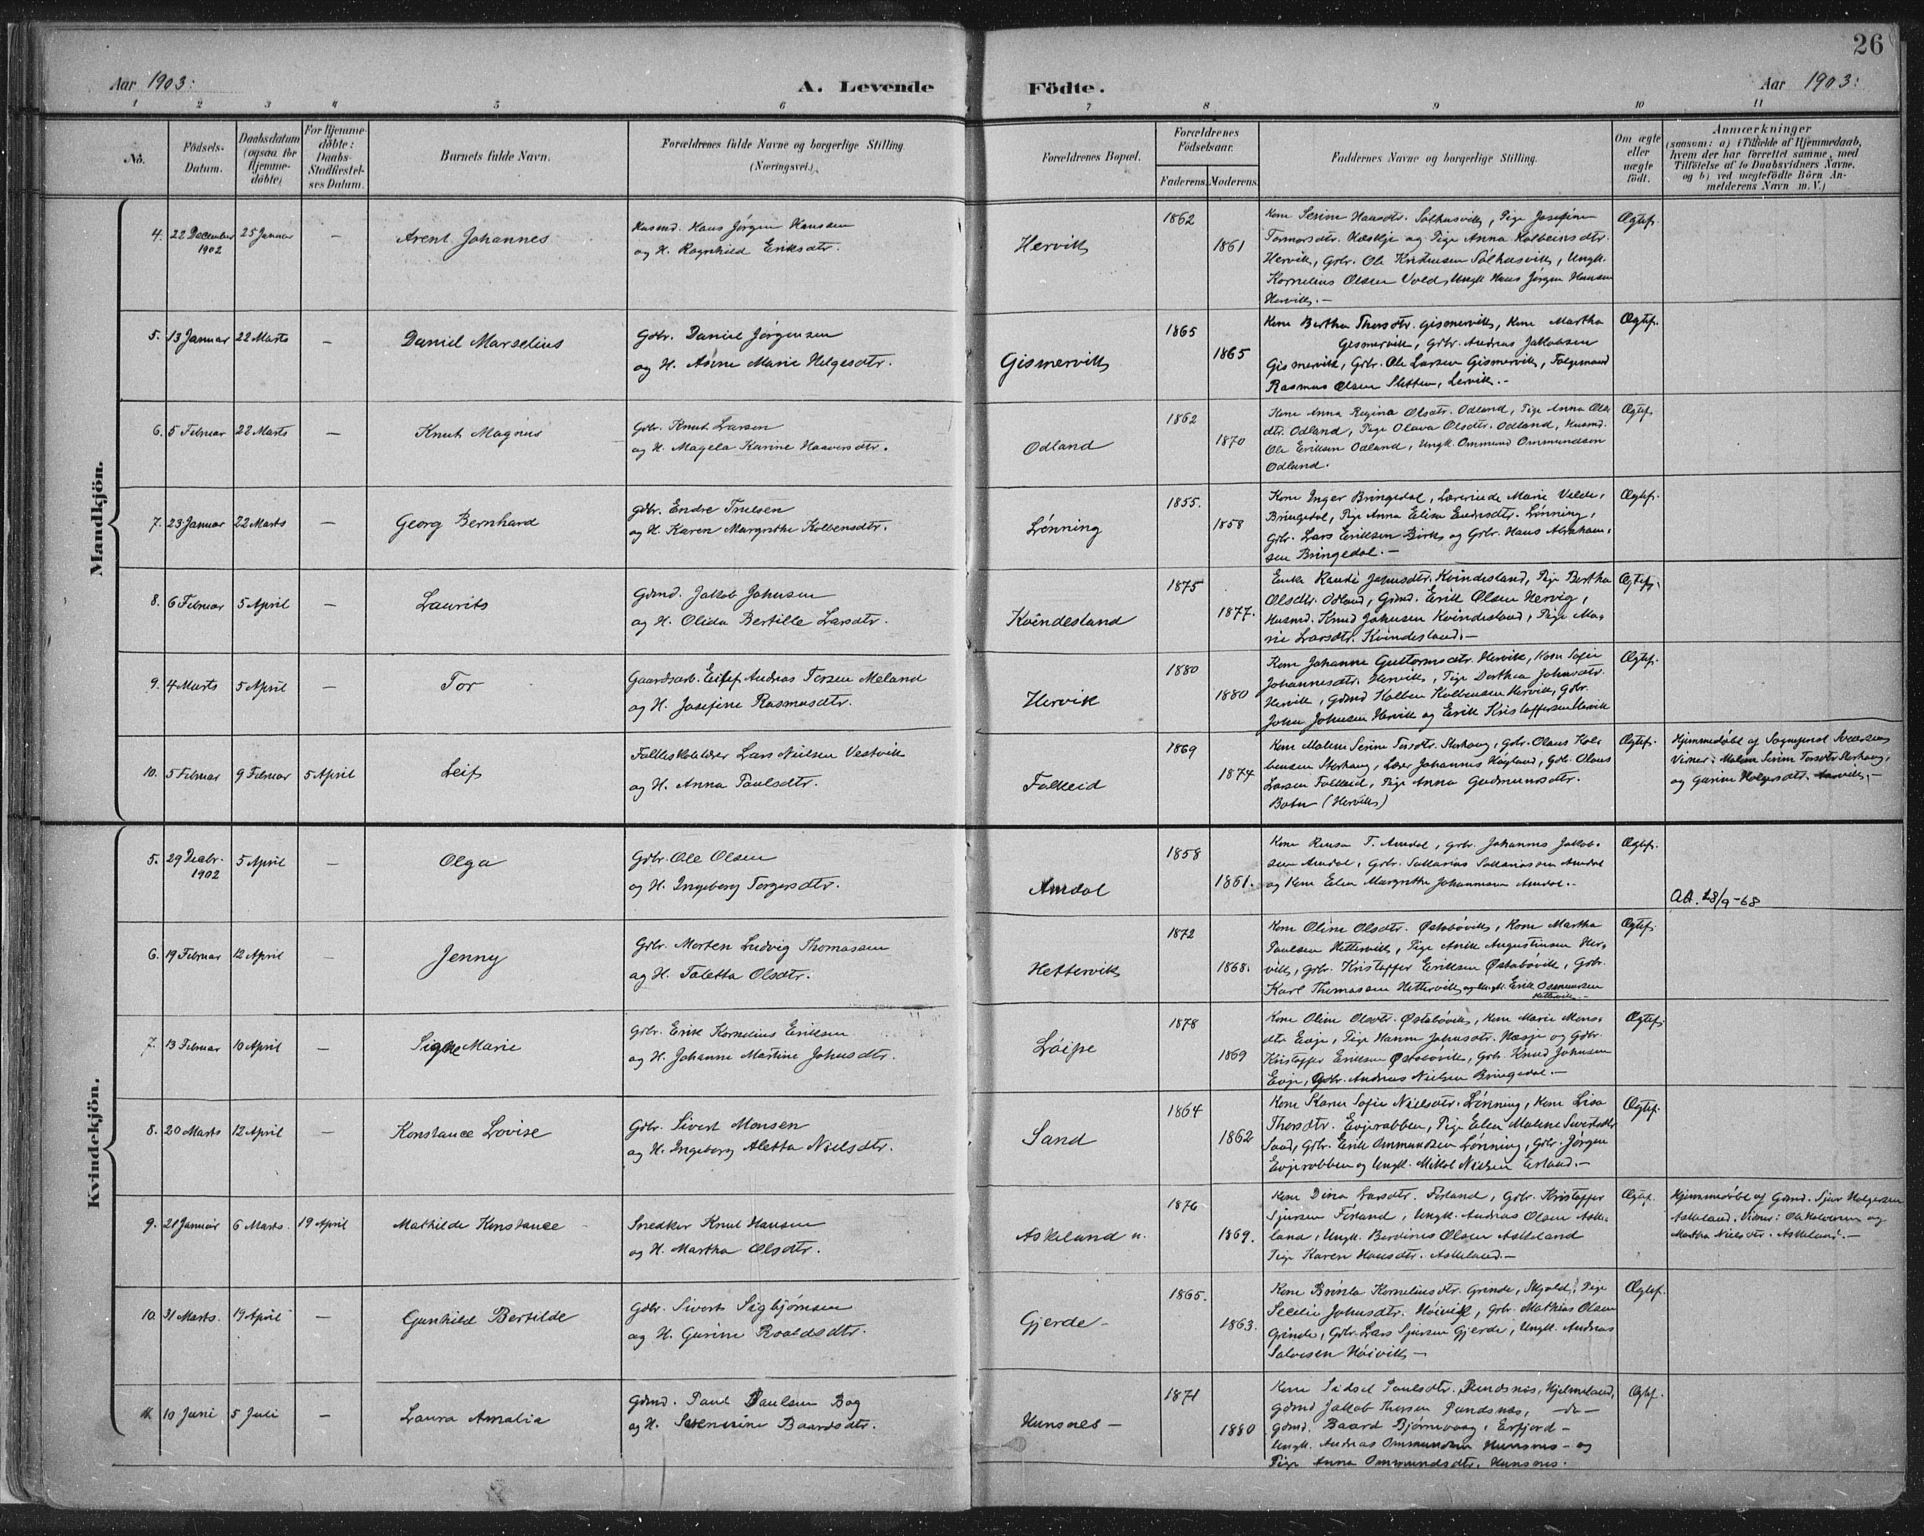 26
Aar 1903:
A. Levende Födte.
Aar 1903:
1 2 3 4 5 6 7 8 9 10 11
No.
Födsels-
Datum.
Daabsdatum
(ogsaa for
Hjemme-
döbte)
For Hjemme-
döbte:
Daabs-
Stadfæstel-
ses Datum.
Barnets fulde Navn.
Forældrenes fulde Navne og borgerlige Stilling.
(Næringsvei.)
Forældrenes Bopæl.
Forældrenes
Födselsaar.
Faderens. Moderens.
Faddernes Navne og borgerlige Stilling.
Om ægte
eller
uægte
födt.
Anmærkninger
(saasom: a) i Tilfælde af Hjemmedaab,
hvem der har forrettet samme, med
Tilföielse af to Daabsvidners Navne,
og b) ved uægtefödte Börn An-
melderens Navn m. V.)
Mandkjön.
4. 22 December 1902 25 Januar — Arent Johannes
Husmd. Hans Jørgen Hansen
og H. Ragnhild Eriksdtr.
Hervik 1862 1861
Kone Serine Hansdtr. Solhusvik, Pige Josefine
Tormorsdtr. Hæskje og Pige Anna Kolbeinsdtr.
Hervik, Gbr. Ole Kristensen Solhusvik, Ungk.
Kornelius Olsen Vold, Ungk Hans Jørgen Hansen
Hervik. —
Ægtef.
5. 13 Januar 22 Marts — Daniel Marselius
Gdbr. Daniel Jørgensen
og H. Asine Marie Helgesdtr.
Gismervik 1865 1865
Kone Bertha Thorsdtr. Gismervik, Kone Martha
Gismervik, Gdbr. Andreas Jakobsen
Gismervik, Gbr. Ole Larsen Gismervik,
Rasmus Olsen Sletten, Lervik. —
Ægtef.
6. 5 Februar 22 Marts — Knut Magnus
Gbr. Knut Larsen
og H. Magela Karine Haaversdtr.
Odland 1862 1870
Kone Anna Regina Olsdtr. Odland, Pige Anna Ols-
dtr. Odland, Pige Olava Olsdtr. Odland, Husmd.
Ole Eriksen Odland, Ungk. Ommund Ommundsen
Odland.
Ægtef.
7. 23 Januar 22 Marts — Georg Bernhard
Gdbr. Endre Truelsen
og H. Karen Margrethe Kolbensdtr.
Lønning 1855. 1858
Kone Inger Bringedal, Lærerinde Marie Velde,
Bringedal, Pige Anna Elisa Endresdtr. Lønning,
Gbr. Lars Eriksen Birk og Gbr. Hans Abraham-
sen Bringedal. —
Ægtef.
8. 6 Februar 5 April — Laurits
Gdmd. Jakob Johnsen
og H. Olida Bertille Larsdtr.
Kvindesland 1875 1877.
Enke Johnsdtr. Kvindesland, Pige Bertha
Olsdtr. Odland, Gdmd. Erik Olsen Hervig,
Husmd. Knud Johnsen Kvindesland, Pige Ma-
rie Larsdtr. Kvindesland. —
Ægtef.
9. 4 Marts 5 April — Tor
Gaardsarb. Andreas Torsen Meland
og H. Josefine Rasmusdtr.
Hervik 1880 1880
Kone Johanne Guttormsdtr. Hervik, Kone Sofie
Johannesdtr. Hervik, Pige Dorthea Johnsdtr.
Hervik, Gdmd Kolben Kolbensen Hervik, Gbr.
John Johnsen Hervik og Erik Kristoffersen Hervik
Ægtef.
10. 5 Februar 9 Februar 5 April Leif
Lars Nielsen Vestvik
og H. Anna Paulsdtr.
Falkeid 1869 1874
Kone Malene Serine Torsdtr. Storhaug, Gbr. Olaus Kol-
bensen Storhaug, Lærer Johannes Høgland, Gdb. Olaus
Larsen Falkeid, Pige Anna Gudmundsdtr.
Botn (Hervik)
Ægtef.
Hjemmedøbt af Sogneprest
Vidner: Malene Serine Torsdtr Storhaug,
og Gurine Holgersdtr. —
Kvindekjön.
5. 29 Decbr. 1902 5 April — Olga
Gdbr. Ole Olsen
og H. Ingeborg Torgersdtr.
Amdal 1858 1861.
Kone T. Amdal, Gbr. Johannes Jakob-
sen Amdal, Gbr. Sakarias Sakariassen Amdal
og Kone Elen Margrethe Johannesen Amdal. —
Ægtef.
AA. 28/9-68
6. 19 Februar 12 April — Jenny
Gbr. Morten Ludvig Thomassen
og H. Taletta Olsdtr.
Hettervik 1872 1868.
Kone Oline Olsdtr. Østabøvik, Kone Martha
Paulsen Hettervik, Pige Augustinsen Her-
vik, Gbr. Kristoffer Eriksen Østabøvik, Gbr.
Karl Thomassen Hettervik og Ungk. Erik
Hettervik. —
Ægtef.
7. 13 Februar 10 April — Signe Marie
Gbr. Erik Kornelius Eriksen
og H. Johanne Martine Johnsdtr.
Løipe 1878 1869
Kone Oline Olsdtr. Østabøvik, Kone Marie Mons-
dtr Evje, Pige Hanne Johnsdtr. Hæsje og Gdbr.
Kristoffer Eriksen Østabøvik, Gbr. Knud Johnsen
Evje, Gdbr. Andreas Nielsen Bringedal. —
Ægtef.
8. 20 Marts 12 April — Konstance Lovise
Gdbr. Sivert Monsen
og H. Ingeborg Aletta Nielsdtr.
Sand 1864 1862
Kone Karen Sofie Nielsdtr. Lønning, Kone Lisa
Thorsdtr. Evjerabben, Pige Elen Malene Sivertsdtr
Sand, Gbr. Erik Ommundsen Lønning, Gbr. Jørgen
Evjerabben og Ungk. Mikal Nielsen Erland. —
Ægtef.
9. 21 Januar 6 Marts. 19 April Mathilde Konstance
Snedker Knut Hansen
og H. Martha Olsdtr.
Askeland u. 1876 1869.
Kone Dina Larsdtr. Førland, Gbr. Kristoffer
Sjursen Førland, Ungk. Andreas Olsen Aske-
land, Ungk. Berdines Olsen Askeland
Pige Karen Hansdtr. Askeland. —
Ægtef.
Hjemmedøbt af Gdmd. Sjur Holgersen
Askeland. Vidner: og
Martha Nielsdtr. Askeland. —
10. 31 Marts. 19 April — Gunhild Bertilde
Gdbr. Sivert Sigbjørnsen
og H. Gurine Roaldsdtr.
Gjerde - 1865. 1863.
Kone Brinla Kornelinsdtr. Grinde, Skjold, Pige
Secelie Johnsdtr. Høivik, Gbr. Mathias Olsen
Grinde, Gdbr. Lars Sjursen Gjerde, Ungk. Andreas
Salvesen Høivik —
Ægtef.
11. 10 Juni 5 Juli — Laura Amalia
Gdmd. Paul Paulsen Bog
og H. Severine Baardsdtr.
Hunsnes - 1871 1880
Kone Sidsel Paulsdtr. Pundsnes, Hjelmeland,
Gdmd Jakob Thorsen Pundsnes, — do —
Gdmd. Baard Bjørnevaag, Erfjord —
Ungk. Andreas Ommundsen Hunsnes — og
Pige Anna Ommundsdtr. Hunsnes. —
Ægtef.